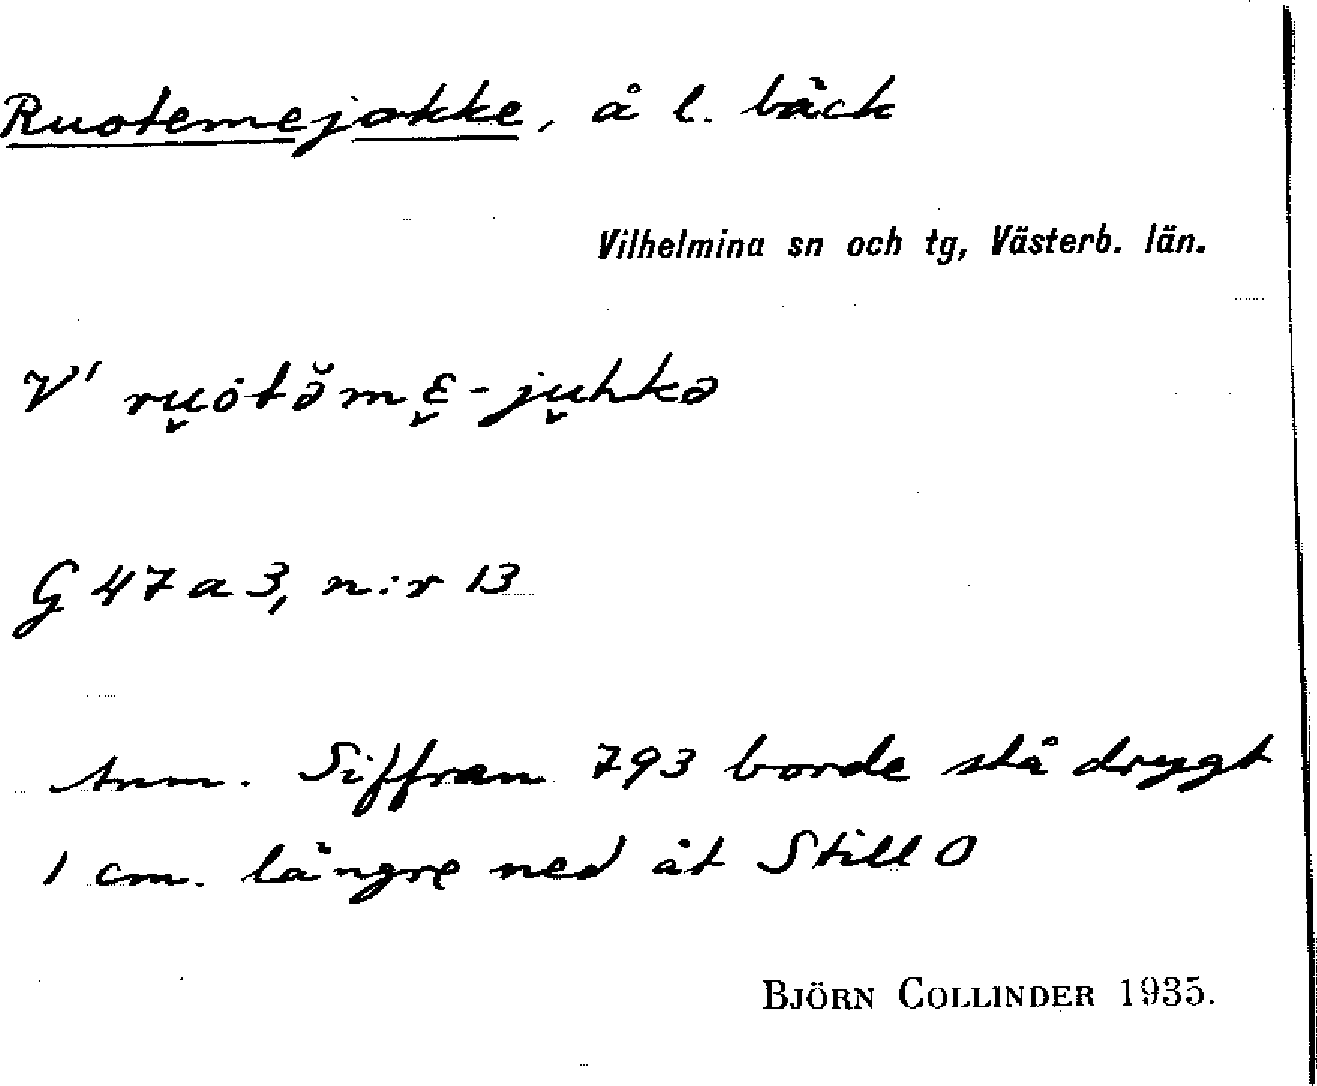 Ruotemejokke, å l. bäck
Vilhelmina sn och tg, Västerb. län.
V' ru̬ótə̆mɛ̬-ju̬hkə
G 47 a 3, n:r 13
Anm. Siffran 793 borde stå drygt
1 cm. längre ned åt Still O
BJÖRN COLLINDER 1935.